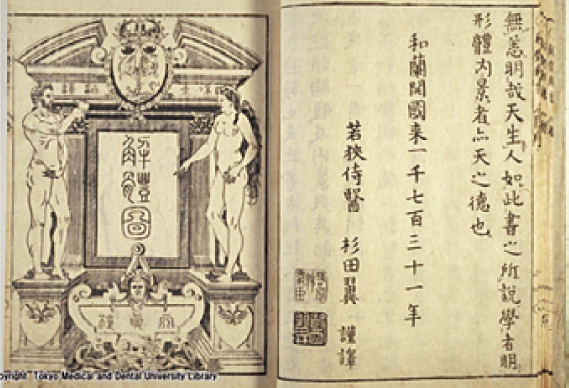 無恙明哉天生人如此書之所説學者明
形體内景者亦天之德也
和蘭開國来一千七百三十一年
若狹侍醫 杉田翼 謹譯
解體圖
opyright Tokyo Medical and Dental University Library